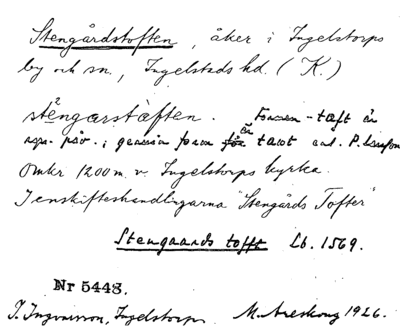 Stengårdstoften, åker i Ingelstorps
by och sn., Ingelstads hd. (K.)
stengarstäften. Formen -täft är
i genuin form tävt enl. P.
Omkr 1200 m. v. Ingelstorps kyrka.
I enskifteshandlingarna "Stengårds Tofter"
Stengaards tofft Lb. 1569.
Nr 5448.
I. Ingvarsson, Ingelstorp. M. Areskoug 1926.